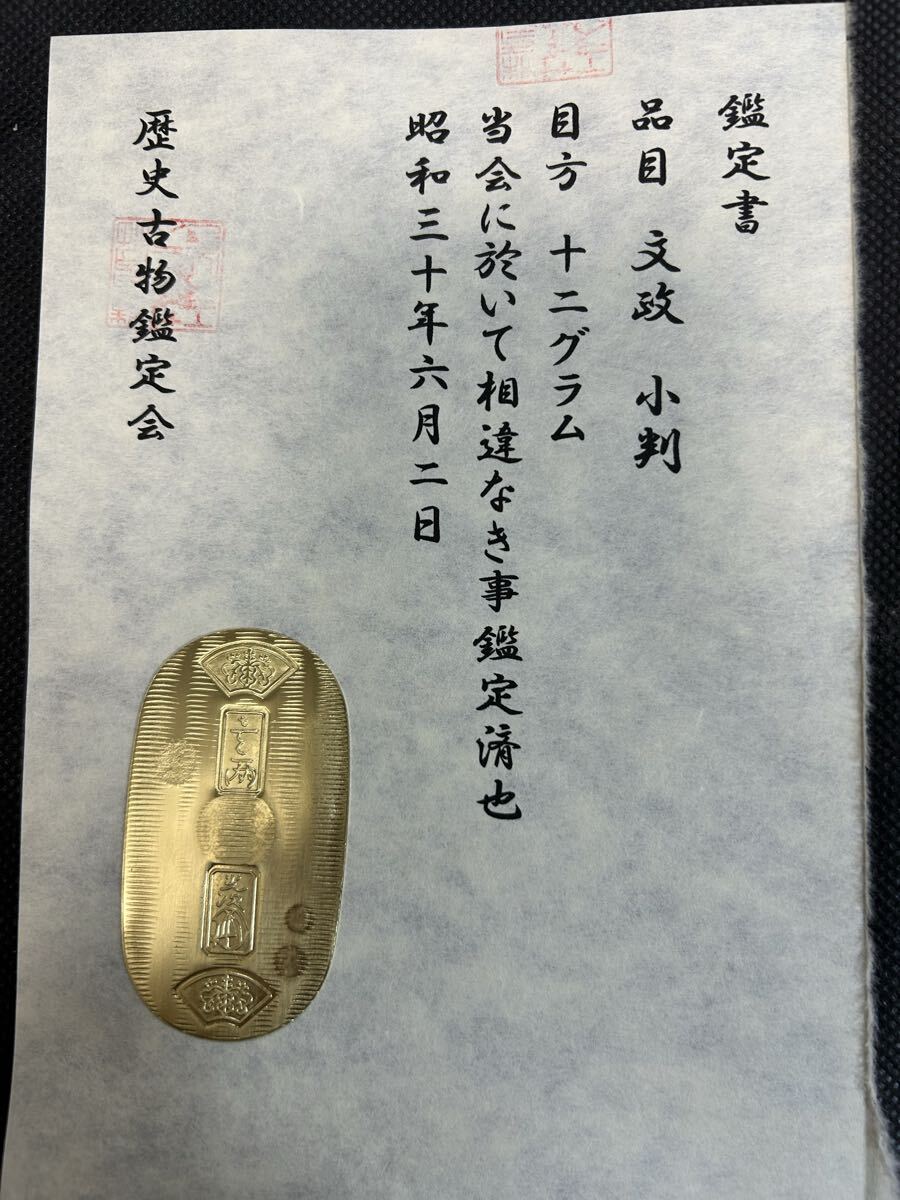 鑑定書
品目 文政 小判
目方 十二グラム
当会に於いて相違なき事鑑定済也
昭和三十年六月二日
歴史古物鑑定会